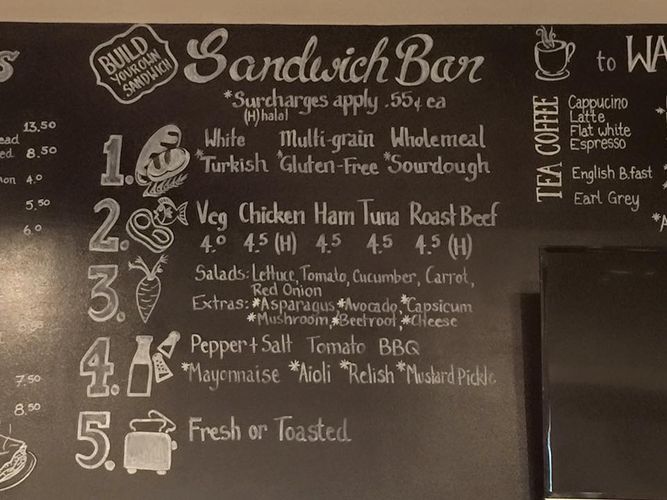 BUILD
YOUR OWN
SANDWICH
Sandwich Bar
*Surcharges apply .55¢ ea
(H) halal
1.
White Multi-grain Wholemeal
*Turkish *Gluten-Free *Sourdough
2.
Veg Chicken Ham Tuna Roast Beef
4.0 4.5 (H) 4.5 4.5 4.5 (H)
3.
Salads: Lettuce, Tomato, Cucumber, Carrot,
Red Onion
Extras: *Asparagus *Avocado, *Capsicum
*Mushroom, *Beetroot, *Cheese
4.
Pepper + Salt Tomato BBQ
*Mayonnaise *Aioli *Relish *Mustard Pickle
5.
Fresh or Toasted
13.50
8.50
4.0
5.50
6.0
7.50
8.50
to WA
TEA COFFEE
Cappucino
Latte
Flat white
Espresso
English B.fast
Earl Grey